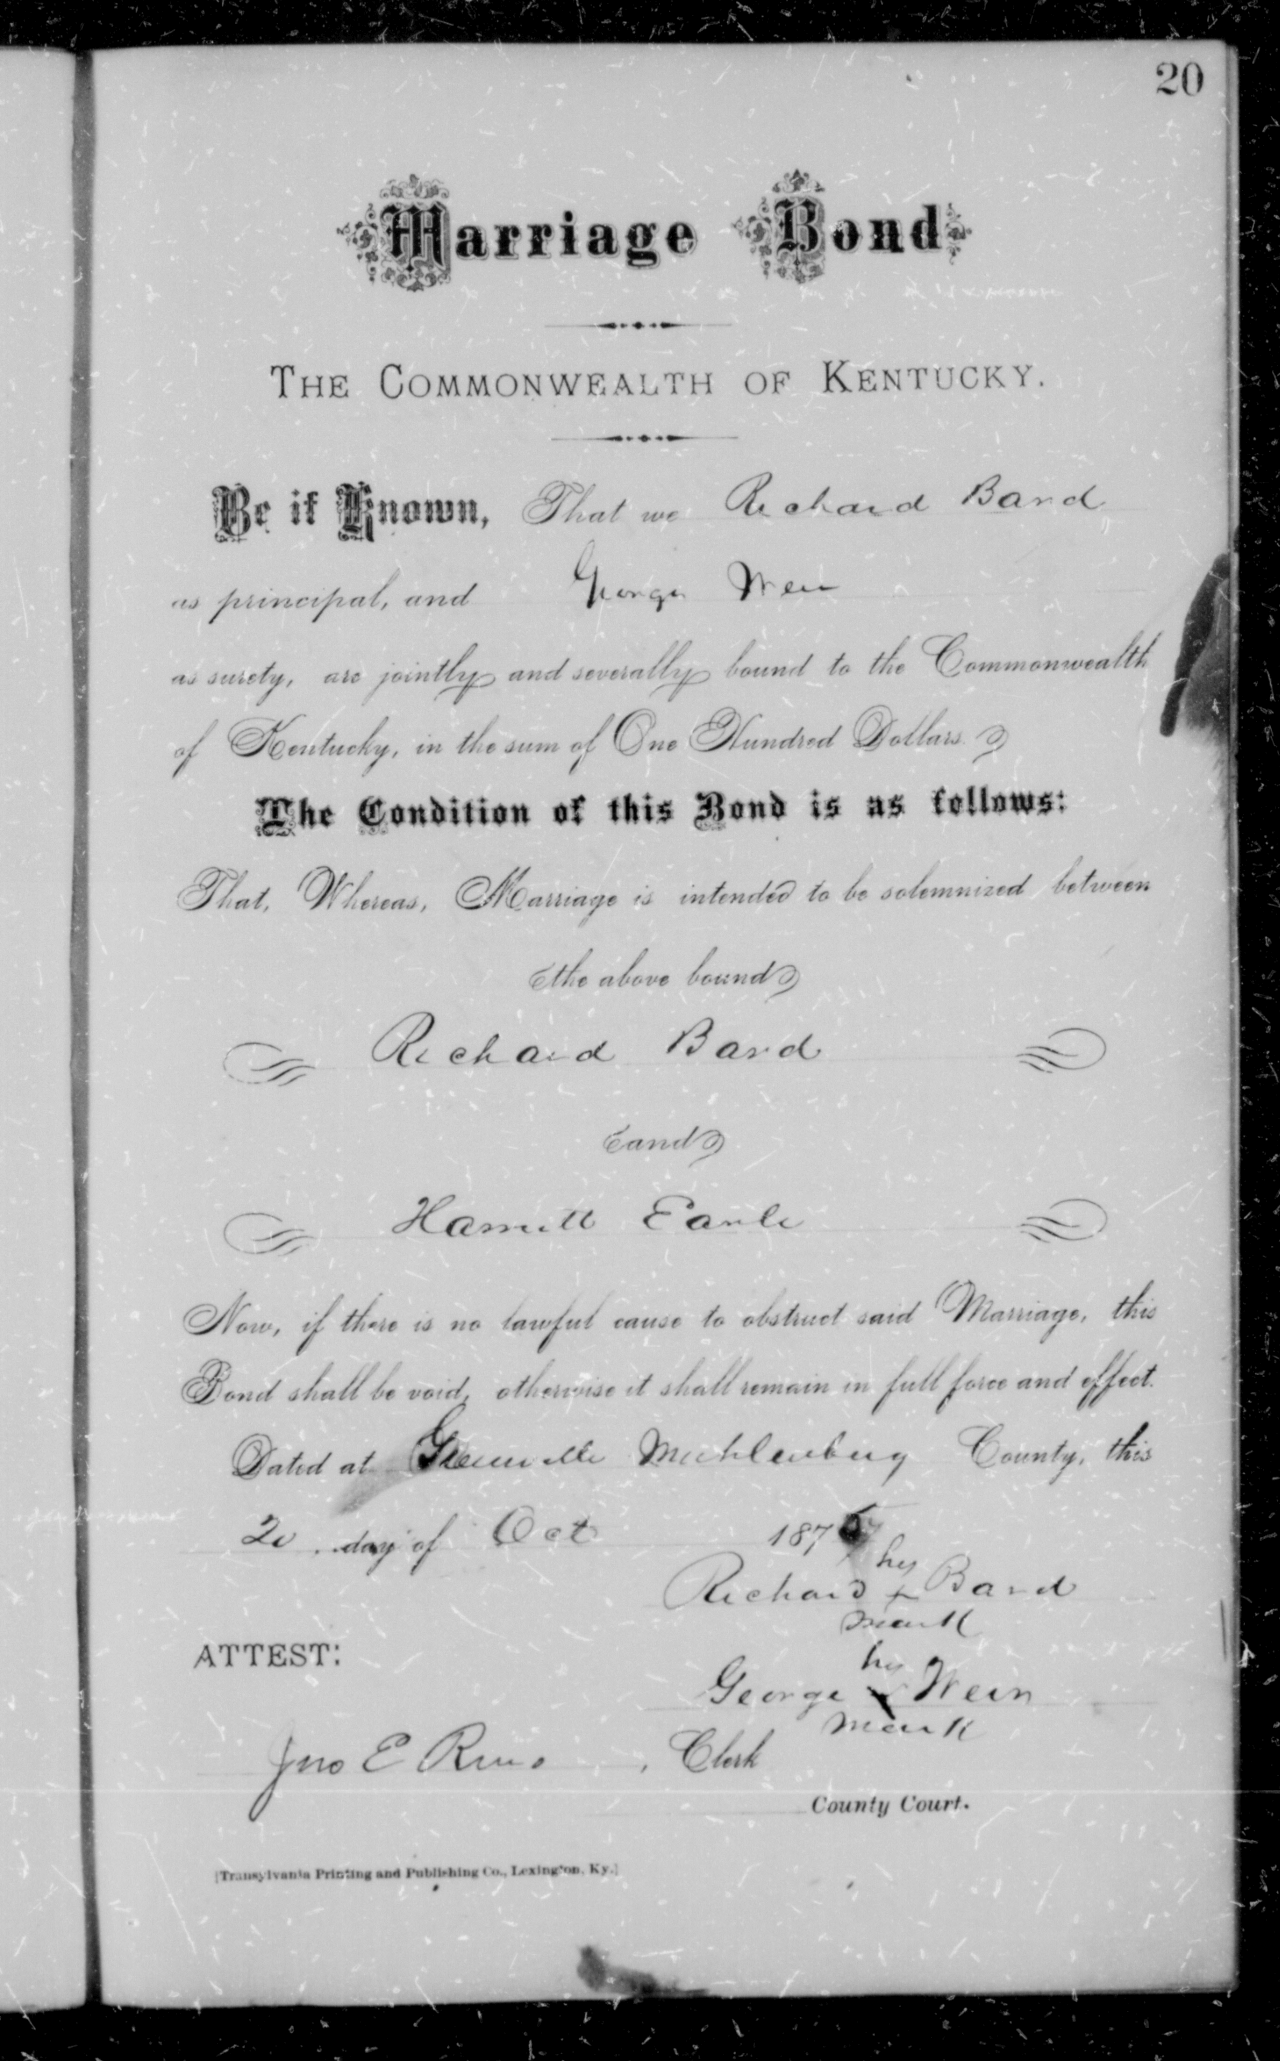 20
Marriage Bond
THE COMMONWEALTH OF KENTUCKY.
Be it Known, That we Richard Bard
as principal, and George Weir
as surety, are jointly and severally bound to the Commonwealth
of Kentucky, in the sum of One Hundred Dollars.
The Condition of this Bond is as follows:
That, Whereas, Marriage is intended to be solemnized between
the above bound
Richard Bard
and
Harriett Earle
Now, if there is no lawful cause to obstruct said Marriage, this
Bond shall be void, otherwise it shall remain in full force and effect.
Dated at Greenville Muhlenburg County, this
20 day of Oct 187
his
Richard x Bard
mark
ATTEST:
his
George x Weir
mark
Jno E Reno, Clerk
County Court.
[Transylvania Printing and Publishing Co., Lexington, Ky.]